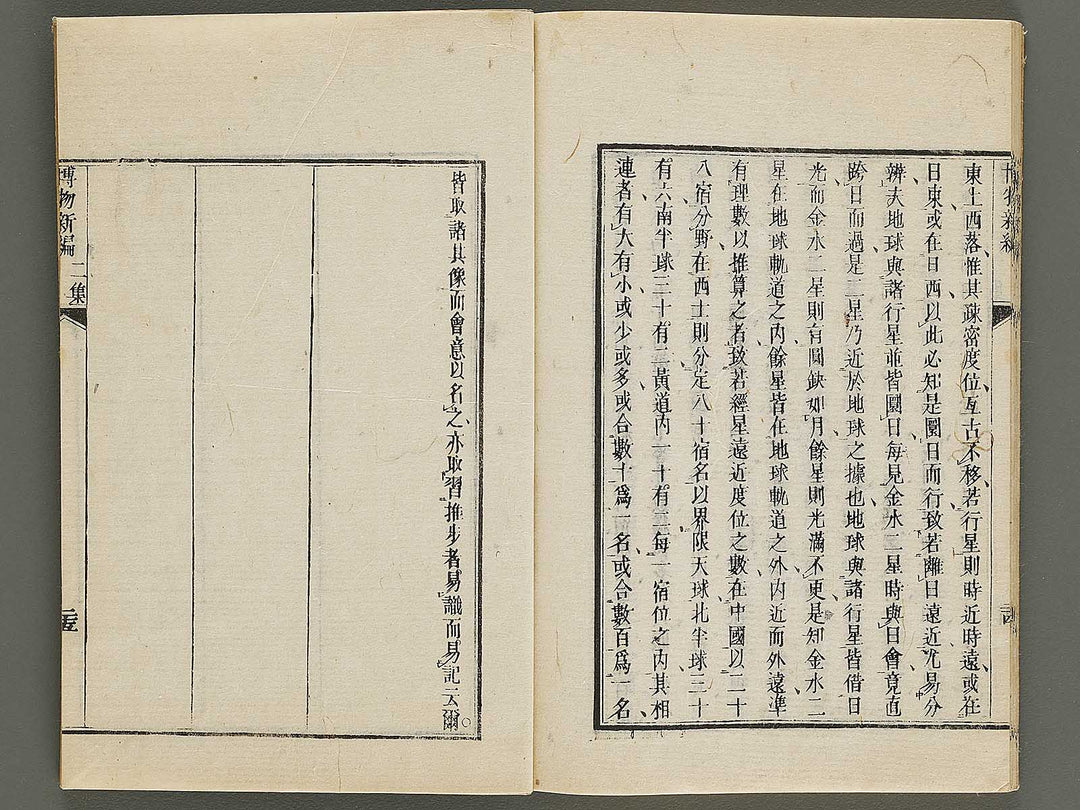 東上西落惟其疎密度位亙古不移若行星則時近時遠或在
日東或在日西以此必知是圜日而行致若離日遠近尤易分
辨夫地球與諸行星並皆圜日每見金水二星時與日會竟直
跨日而過是二星乃近於地球之據也地球與諸行星皆借日
光而金水二星則有圓缺如月餘星則光滿不更是知金水二
星在地球軌道之內餘星皆在地球軌道之外內近而外遠準
有理數以推算之者致若經星遠近度位之數在中國以二十
八宿分野在西士則分定八十宿名以界限天球北半球三十
有六南半球三十有二黃道內一十有二每一宿位之內其相
連者有大有小或少或多或合數十爲一名或合數百爲一名
皆取諸其像而會意以名之亦取習推步者易識而易記云爾。
博物新編 二集
二十五